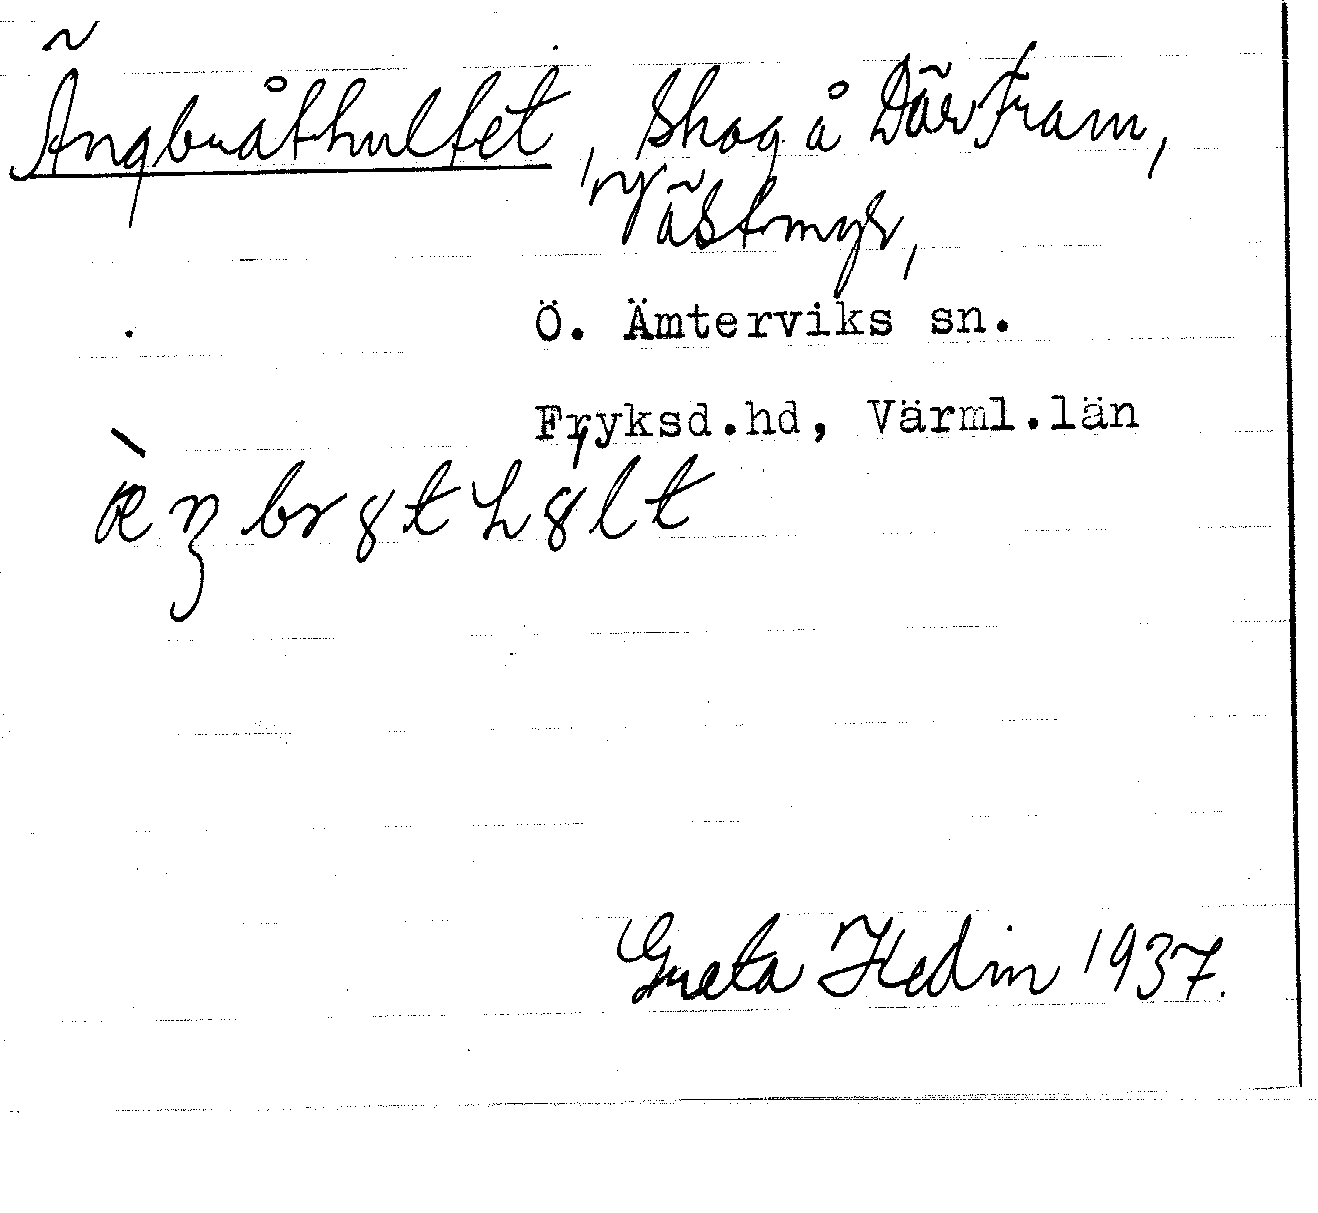 Ängbråthultet, Skog å Där Fram,
Västmyr,
Ö. Ämterviks sn.
Fryksd.hd, Värml.län
Greta Hedin 1937.